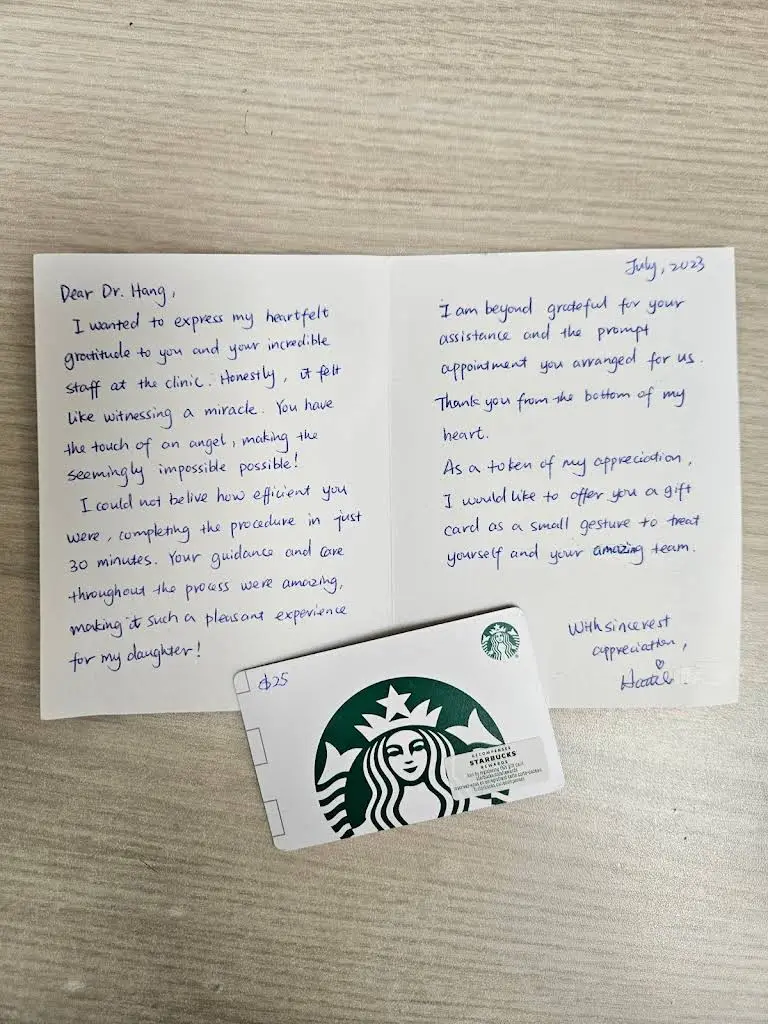 Dear Dr. Hang,
I wanted to express my heartfelt
gratitude to you and your incredible
staff at the clinic. Honestly, it felt
like witnessing a miracle. You have
the touch of an angel, making the
seemingly impossible possible!
I could not belive how efficient you
were, completing the procedure in just
30 minutes. Your guidance and care
throughout the process were amazing,
making it such a pleasant experience
for my daughter!
July, 2023
I am beyond grateful for your
assistance and the prompt
appointment you arranged for us.
Thank you from the bottom of my
heart.
As a token of my appreciation,
I would like to offer you a gift
card as a small gesture to treat
yourself and your amazing team.
With sincerest
appreciation,
$25
STARBUCKS
REWARDS